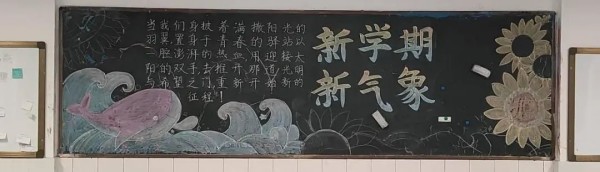 当我们身披着满撒阳光的
羽翼置身于青春的驿站以
一腔澎湃的热血用迎接大
阳的双手去推开那道光明
与希望之门重新开启新的
征程！
新学期
新气象